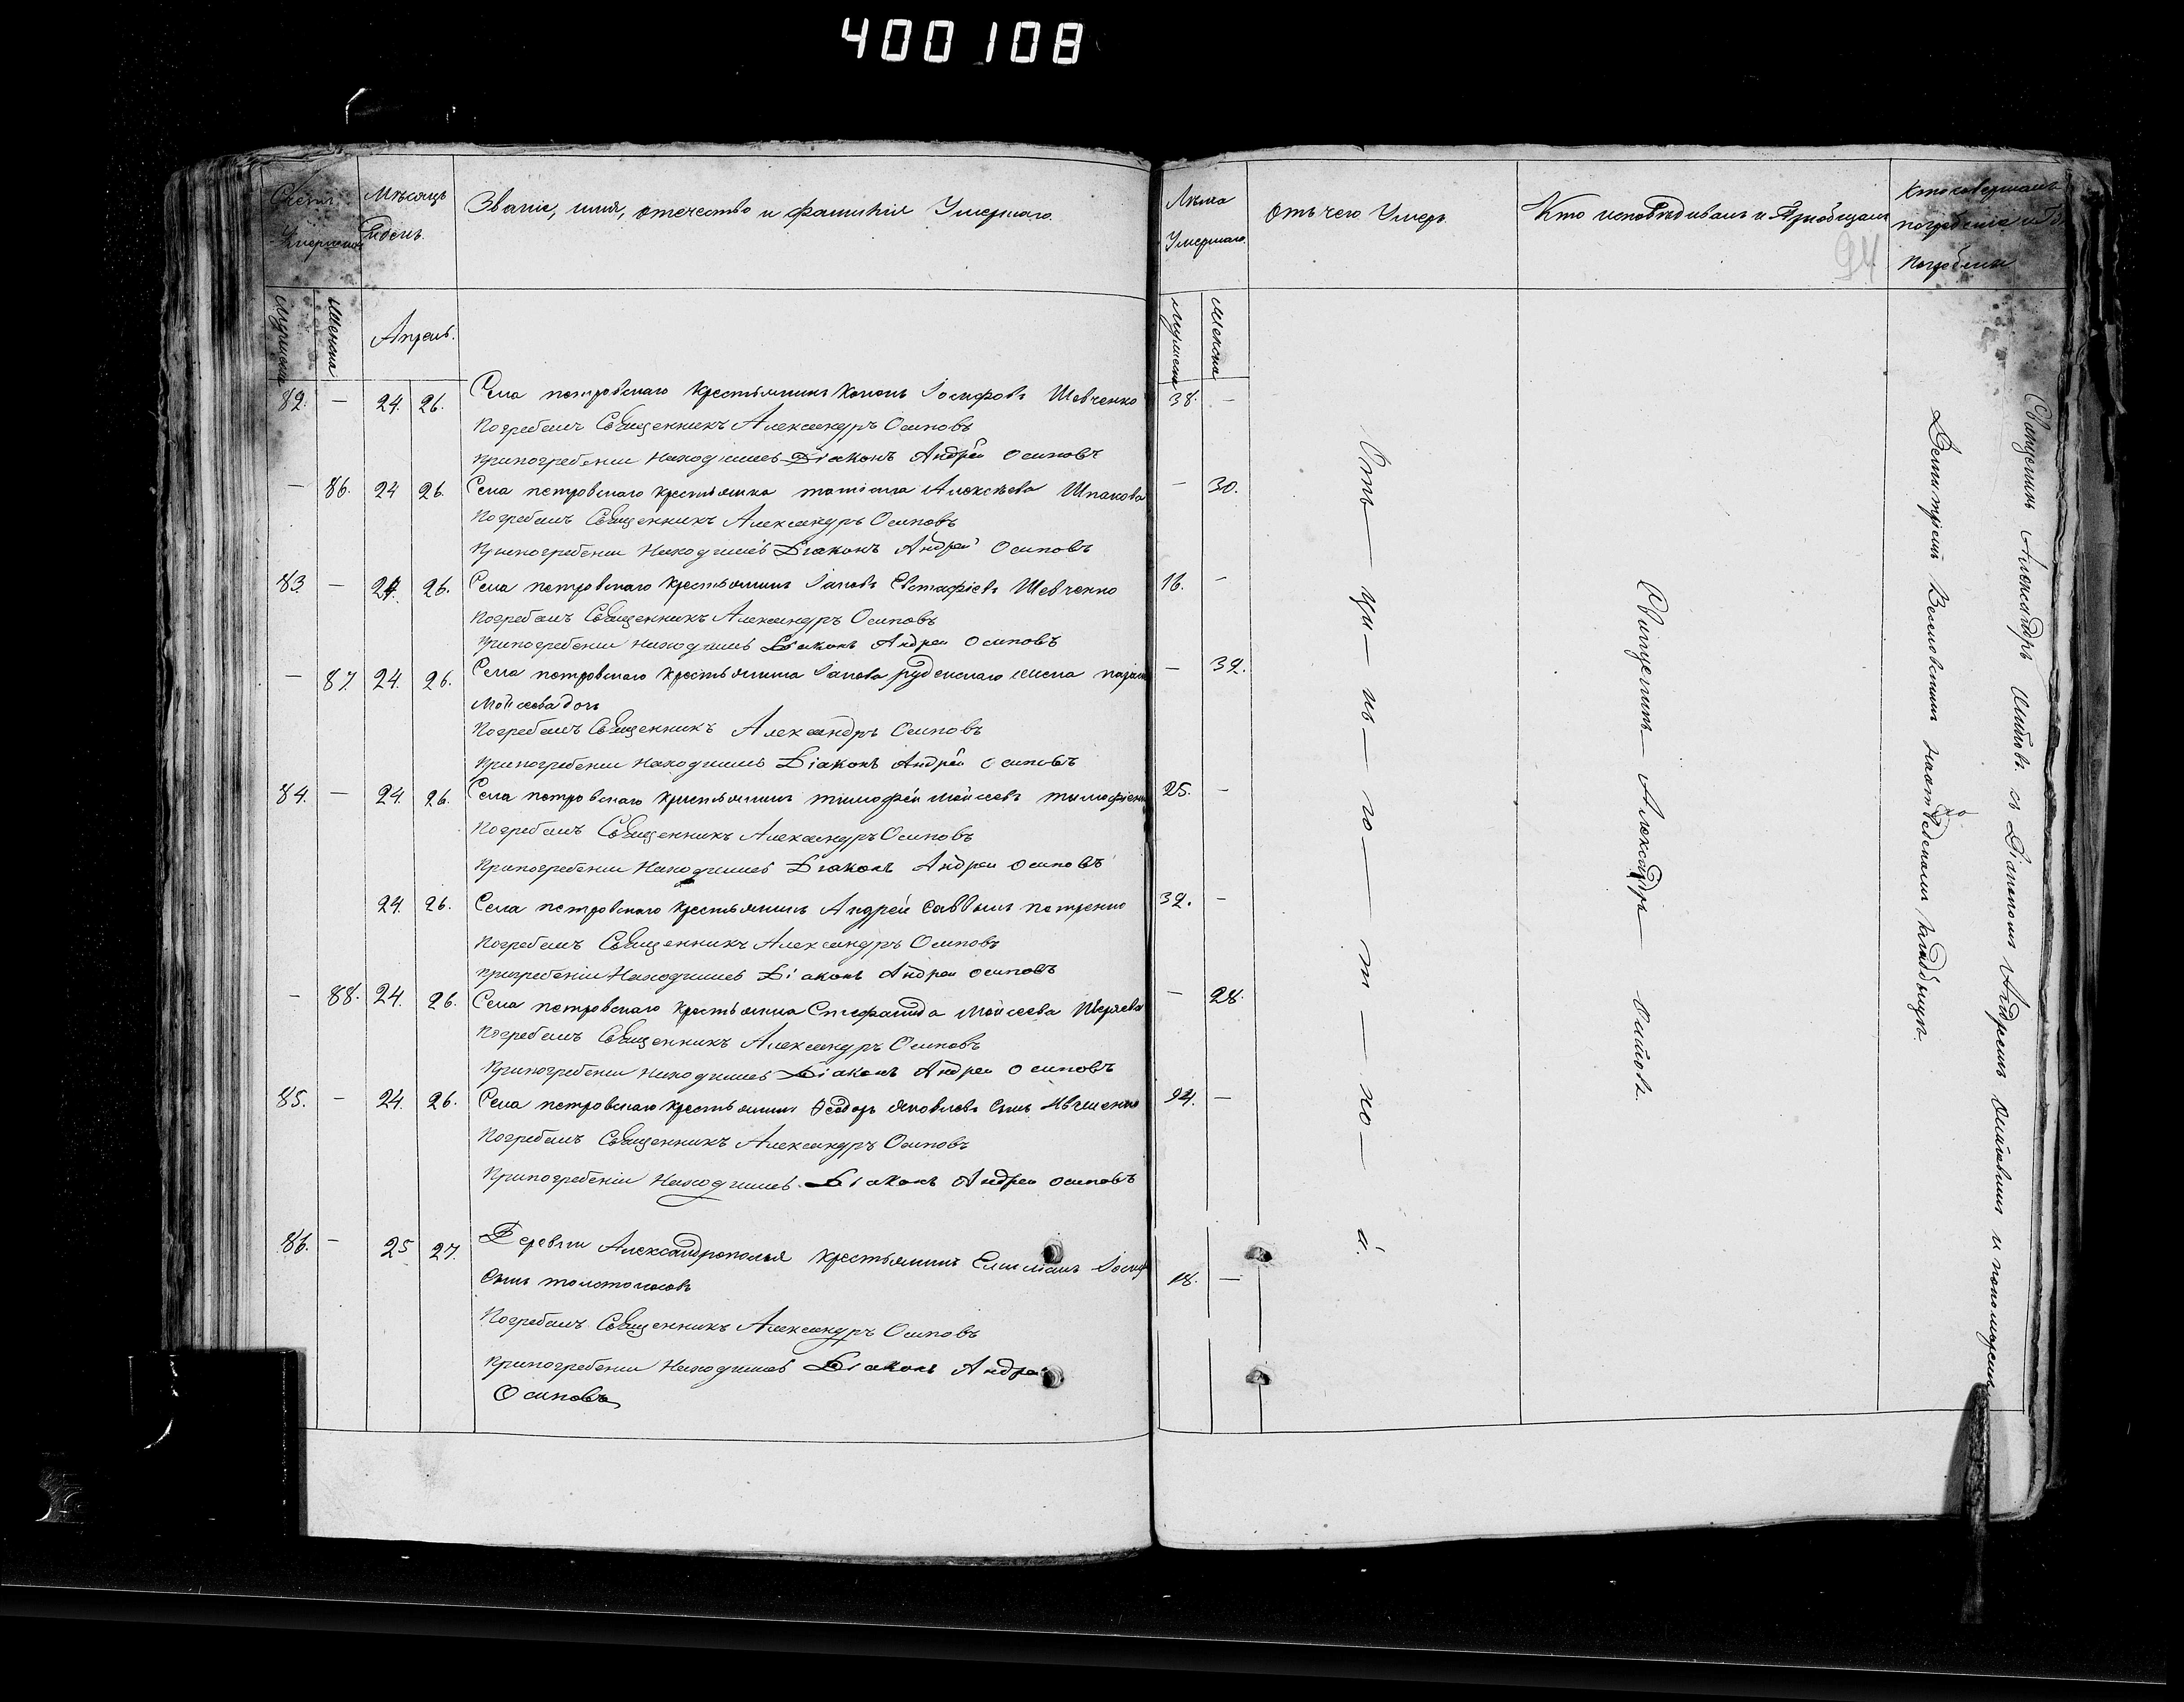 400108
Счетъ Умершихъ
Мѣсяцъ и день.
Званіе, имя, отечество и фамилія Умершаго.
Лѣта Умершаго.
отъ чего Умеръ.
Кто исповѣдывалъ и Пріобщалъ
Кто совершалъ погребеніе и гдѣ погребены
94
мужеска
женска
Апрель.
мужеска
женска
82. — 24. 26. Села петровскаго крестьянинъ Кононъ Іосифовъ Шевченко 38. —
Погребалъ Священникъ Александръ Осиповъ
при погребении Находился Діаконъ Андрей Осиповъ
— 86. 24 26. Села петровскаго крестьянка татіана Алексѣева Шпакова — 30.
Погребалъ Священникъ Александръ Осиповъ
При погребении Находился Діаконъ Андрей Осиповъ
83. — 24. 26. Села петровскаго крестьянинъ Іаковъ Евстафіевъ Шевченко 16. —
Погребалъ Священникъ Александръ Осиповъ
При погребении находился Діаконъ Андреи Осиповъ
— 87. 24. 26. Села петровскаго крестьянина Іакова руденскаго жена — 32.
Мойсеева дочь
Погребалъ Священникъ Александръ Осиповъ
При погребении Находился Діаконъ Андрей Осиповъ
84. — 24. 26. Села петровскаго крестьянинъ тимофей мойсеевъ 25. —
Погребалъ Священникъ Александръ Осиповъ
При погребении Находился Діаконъ Андреи Осиповъ
24. 26. Села петровскаго крестьянинъ Андрей Саввинъ петренко 32. —
Погребалъ Священникъ Александръ Осиповъ
пригребеніи Находился Діаконъ Андреи осиповъ
— 88. 24. 26. Села петровскаго крестьянка Стефанида Мойсеева — 28.
Погребалъ Священникъ Александръ Осиповъ
При погребении Находился Діаконъ Андреи Осиповъ
85. — 24. 26. Села петровскаго крестьянинъ Ѳеодоръ Яковлевъ Сынъ —
Погребалъ Священникъ Александръ Осиповъ
При погребеніи Находился Діаконъ Андреи осиповъ
86. — 25 27. Деревни Александрополья крестьянинъ 18. —
Сынъ толстоносовъ
Погребалъ Священникъ Александръ Осиповъ
При погребении Находился Діаконъ Андреи
Осиповъ
Отъ — цы — нъ — го — т — но — й.
Священникъ Александръ Осиповъ.
Священникъ Александръ Осиповъ съ Діакономъ Андреемъ Осиповымъ и пономаремъ
Димитріемъ на отведенномъ кладбищѣ.